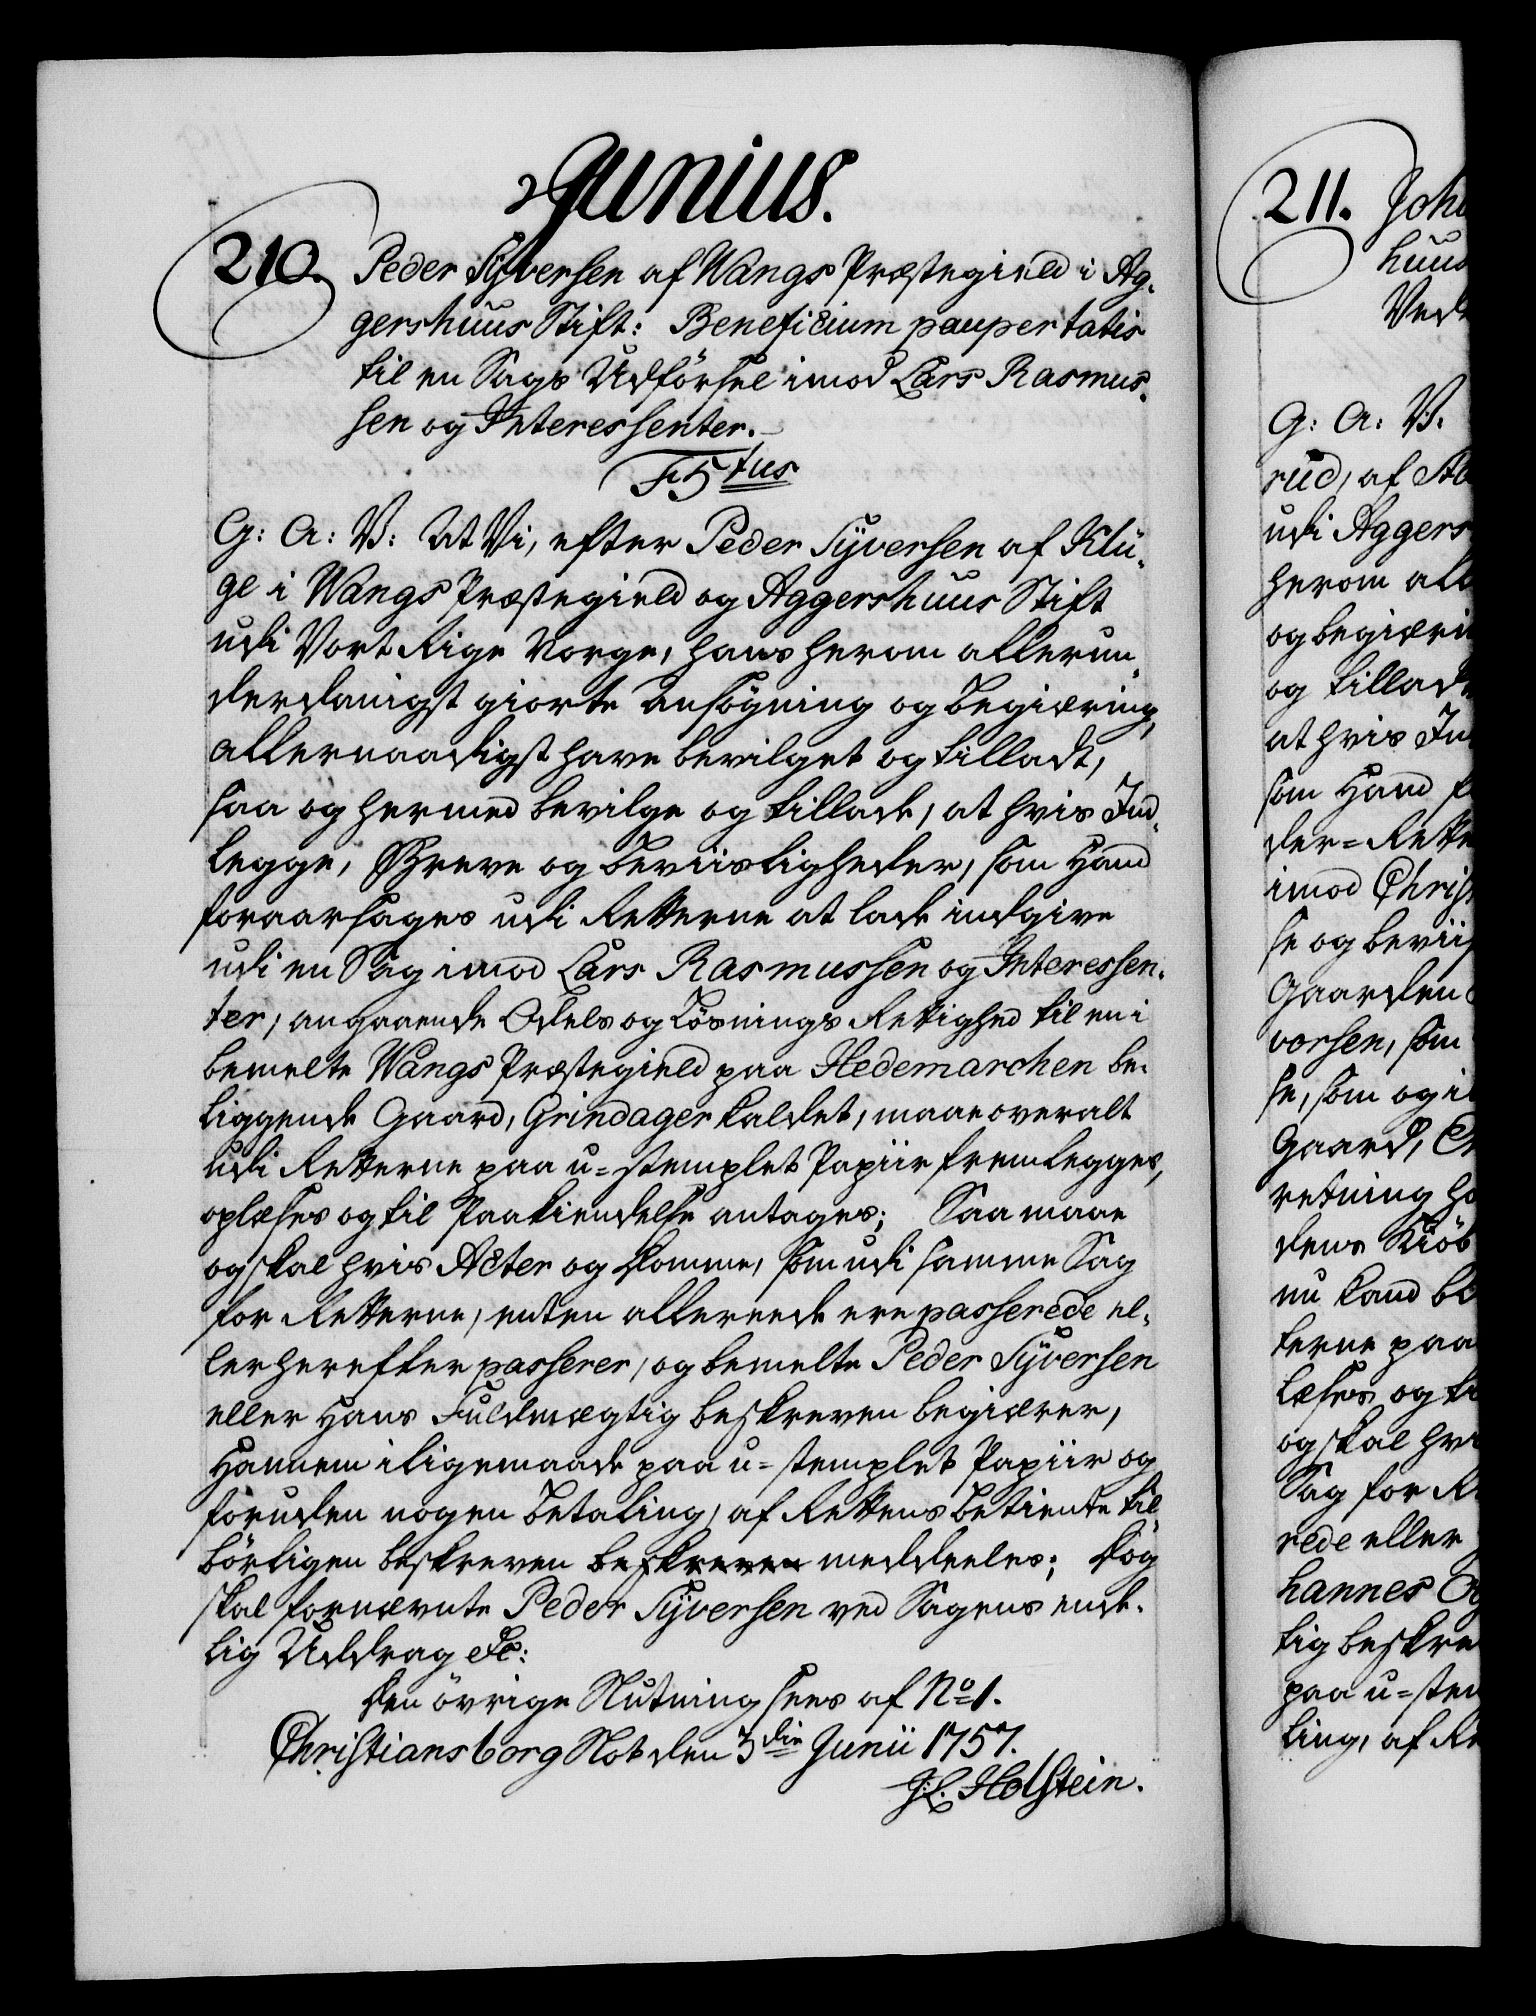 Junius.
210. Peder Syversen af Wangs Præstegield i Ag-
gershuus Stift: Beneficium paupertatis
til en Sags Udförsel imod Lars Rasmus-
sen og Interessenter.
F5tus
G: A: V: At Vi, efter Peder Syversen af Klü-
ge i Wangs Præstegield og Aggershuus Stift
udi Vort Rige Norge, hans herom allerun-
derdanigst giorte Ansögning og Begiæring,
allernaadigst have bevilget og tilladt,
saa og hermed bevilge og tillade, at hvis Ind-
legge, Breve og Beviisligheder, som Hand
foraarsages udi Retterne at lade indgive
udi en Sag imod Lars Rasmussen og Interessen-
ter, angaaende Odels og Lösnings Rettighed til en i
bemelte Wangs Præstegield paa Hedemarchen be-
liggende Gaard, Grindager kaldet, maae overalt
udi Retterne paa u=stemplet Papiir fremlegges,
oplæses og til Paakiendelse antages; Saa maae
og skal hvis Acter og Domme, som udi samme Sag
for Retterne, enten allereede ere passerede el-
ler herefter passerer, og bemelte Peder Syversen
eller Hans Fuldmægtig beskreven begiærer,
Hannem i ligemaade paa u=stemplet Papiir og
foruden nogen Betaling, af Rettens Betiente til-
börligen beskreven beskreven meddeeles; Dog
skal fornævnte Peder Syversen ved Sagens ende-
lig Uddrag &c:
Den övrige Slutning sees af No 1.
Christiansborg Slot den 3die Junii 1757.
J. L. Holstein.
211. Joh
huus
Ved
G: A: V:
rud, af
udi Aggers
herom all
og begiæri
og tillad
at hvis In
som Hand
der=Rette
imod Chris
se og beviis
Gaarden
vorsen, som
se, som og i
Gaard,
retning ha
dens Kiöb
nu kand be
terne paa
læses og ti
og skal hvi
Sag for Re
rede eller
hannes
tig beskre
paa u=stem
ling, af Re